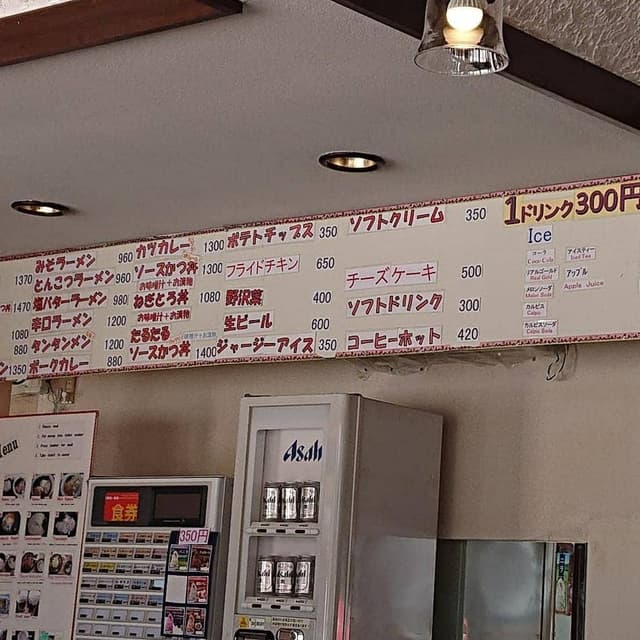 1370
1470
1080
880
1350
みそラーメン 960
とんこつラーメン 960
塩バターラーメン 980
辛口ラーメン 1200
タンタンメン 1200
ポークカレー 880
カツカレー 1300
ソースかつ丼 1300
お味噌汁＋お漬物
ねぎとろ丼 1080
お味噌汁＋お漬物
たるたる
ソースかつ丼 1400
ポテトチップス 350
フライドチキン 650
野沢菜 400
生ビール 600
ジャージーアイス 350
ソフトクリーム 350
チーズケーキ 500
ソフトドリンク 300
コーヒーホット 420
1ドリンク300円
Ice
コーラ
Coca Cola
リアルゴールド
Real Gold
メロンソーダ
Melon Soda
カルピス
Calpis
カルピスソーダ
Calpis Soda
アイスティー
Iced Tea
アップル
Apple Juice
Menu
食券
350円
Asahi